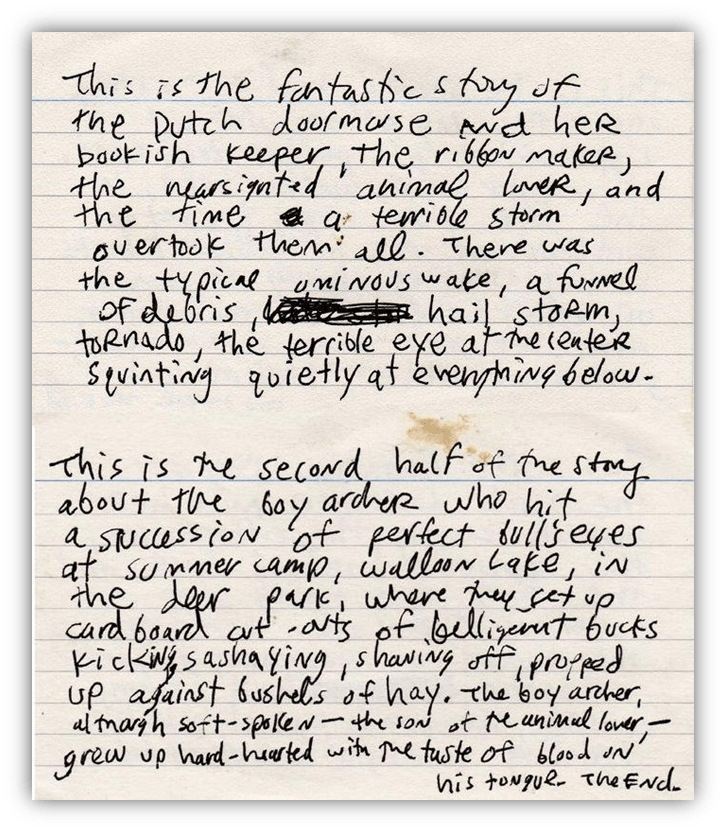 This is the fantastic story of
the Dutch doormouse and her
bookish keeper, the ribbon maker,
the nearsignted animal lover, and
the time a terrible storm
overtook them all. There was
the typical ominous wake, a funnel
of debris, hail storm,
tornado, the terrible eye at the center
squinting quietly at everything below.
This is the second half of the story
about the boy archer who hit
a succession of perfect bull's eyes
at summer camp, Walloon Lake, in
the deer park, where they set up
cardboard cut-outs of belligerent bucks
kicking, sashaying, showing off, propped
up against bushels of hay. The boy archer,
although soft-spoken — the son of the animal lover, —
grew up hard-hearted with the taste of blood on
his tongue. The End.